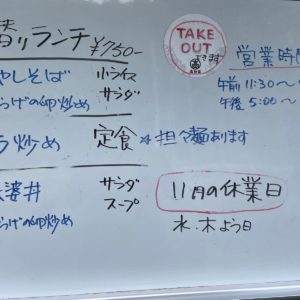 替りランチ ¥750-
やしそば 小ライス
らげの卵炒め サラダ
ラ炒め 定食 ☆担々麺あります
婆丼 サラダ
らげの卵炒め スープ
TAKE
OUT
できます
営業時間
午前 11:30〜
午後 5:00〜
11月の休業日
水、木よう日